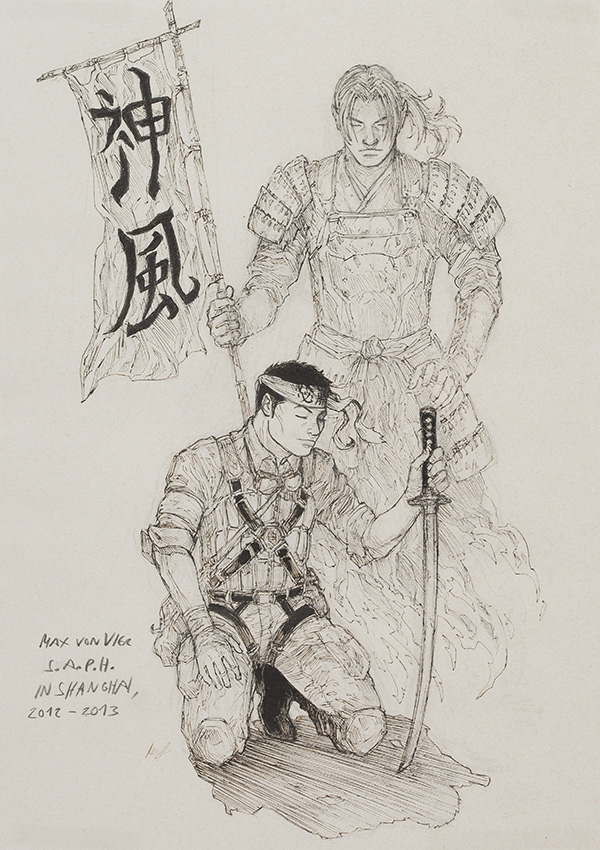 神
風
MAX VON VIER
S.A.P.H.
IN SHANGHAI,
2012 - 2013